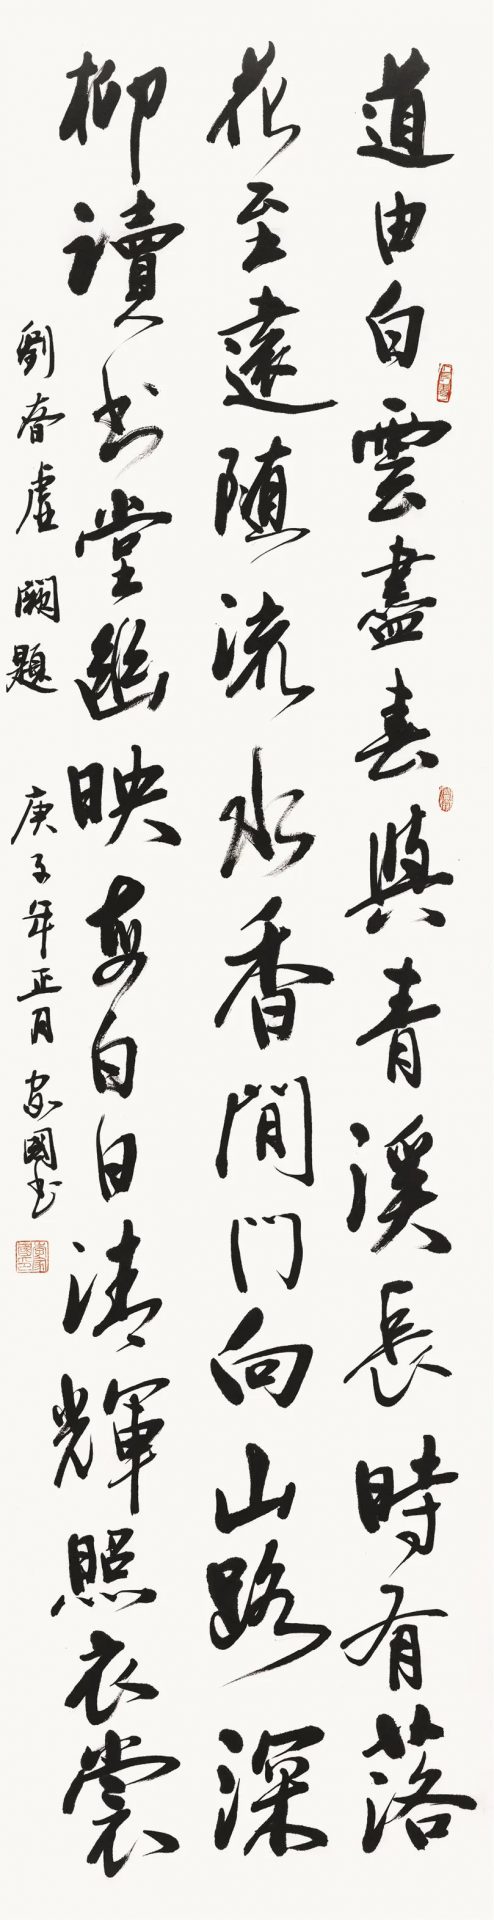 道由白雲盡春與青溪長時有落
花至遠随流水香閒門向山路深
柳讀書堂幽映每白日清輝照衣裳
劉昚虛 闕題 庚子年正月 家國書